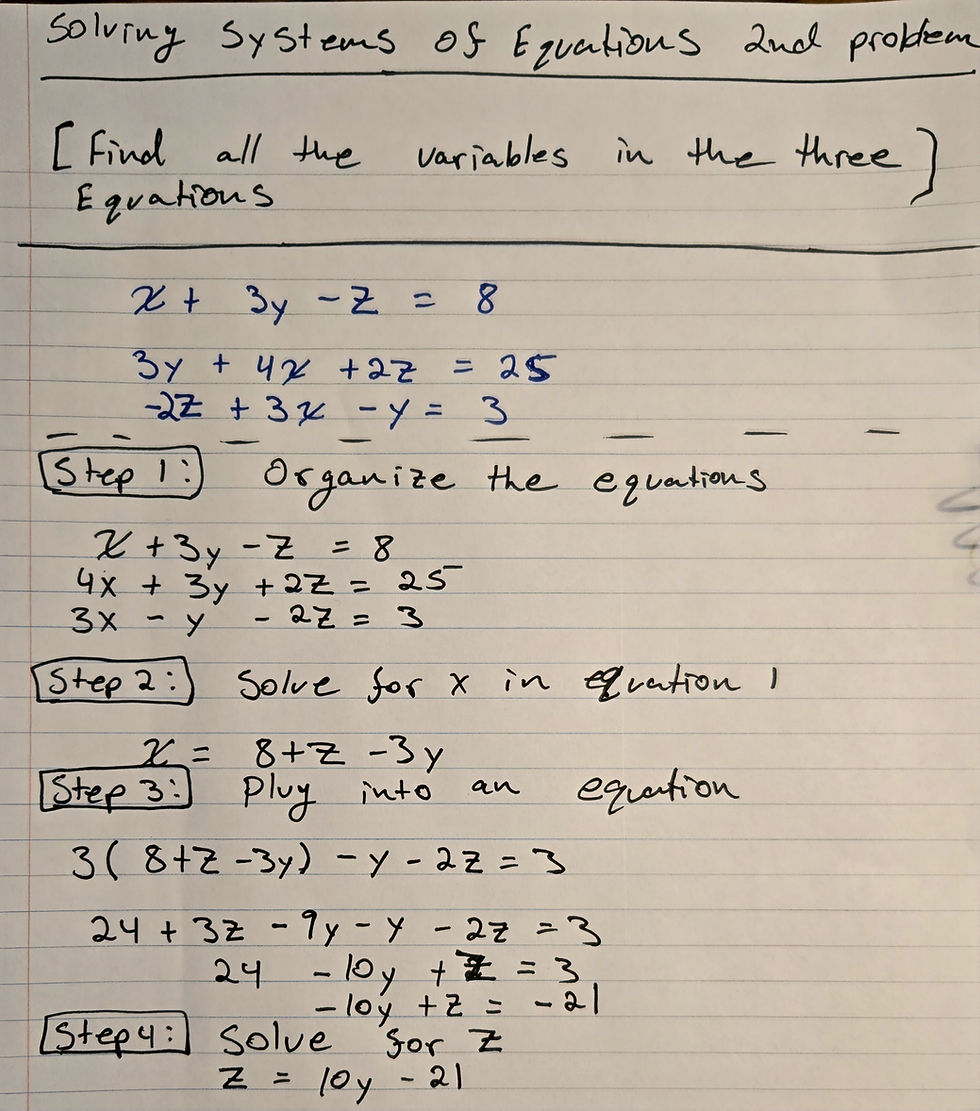 Solving Systems of Equations 2nd problem
[Find all the variables in the three]
Equations
x + 3y - z = 8
3y + 4x + 2z = 25
-2z + 3x - y = 3
Step 1: Organize the equations
x + 3y - z = 8
4x + 3y + 2z = 25
3x - y - 2z = 3
Step 2: Solve for x in equation 1
x = 8+z -3y
Step 3: Plug into an equation
3(8+z-3y) - y - 2z = 3
24 + 3z - 9y - y - 2z = 3
24 - 10y + z = 3
-10y + z = -21
Step 4: Solve for z
z = 10y - 21